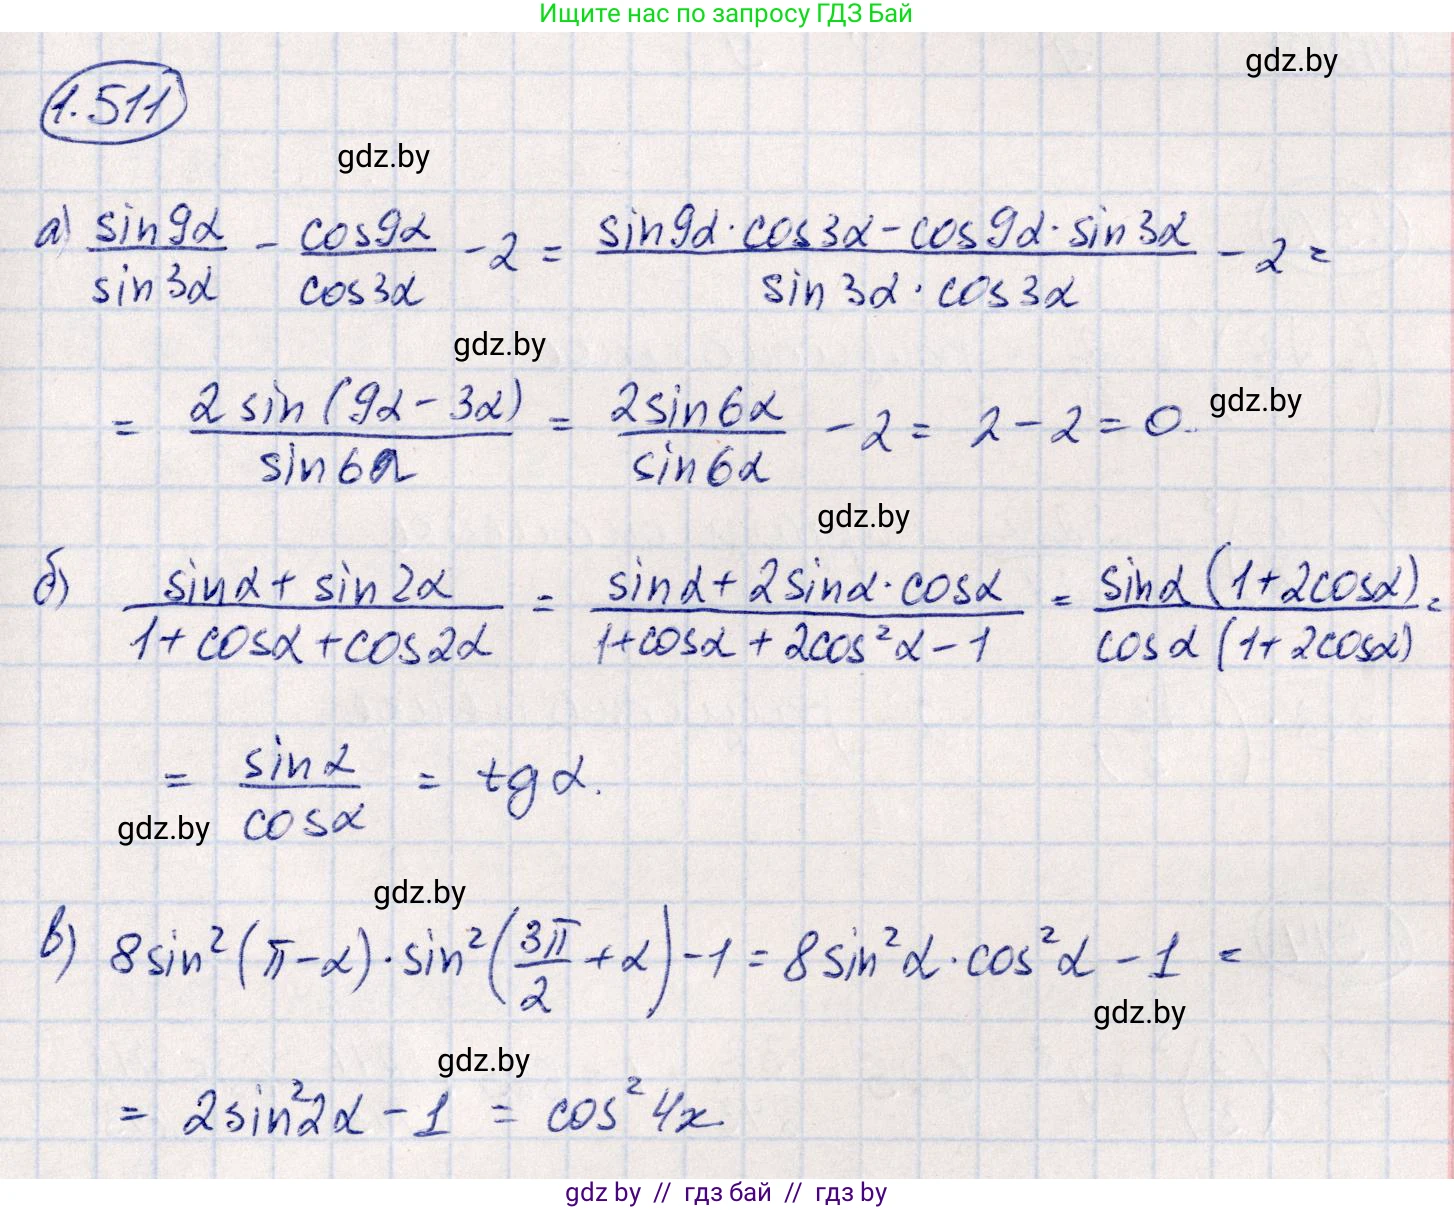 Ищите нас по запросу ГДЗ Бай
gdz.by
1.511
gdz.by
а) sin9α/sin3α - cos9α/cos3α - 2 = (sin9α · cos3α - cos9α · sin3α)/(sin3α · cos3α) - 2 =
gdz.by
= 2sin(9α - 3α)/sin6α = 2sin6α/sin6α - 2 = 2 - 2 = 0.
gdz.by
gdz.by
б) (sinα + sin2α)/(1 + cosα + cos2α) = (sinα + 2sinα · cosα)/(1 + cosα + 2cos²α - 1) = sinα(1 + 2cosα)/cosα(1 + 2cosα) =
= sinα/cosα = tgα.
gdz.by
gdz.by
в) 8sin²(π - α) · sin²(3π/2 + α) - 1 = 8sin²α · cos²α - 1 =
gdz.by
gdz.by
= 2sin²2α - 1 = cos²4x
gdz by // гдз бай // гдз by